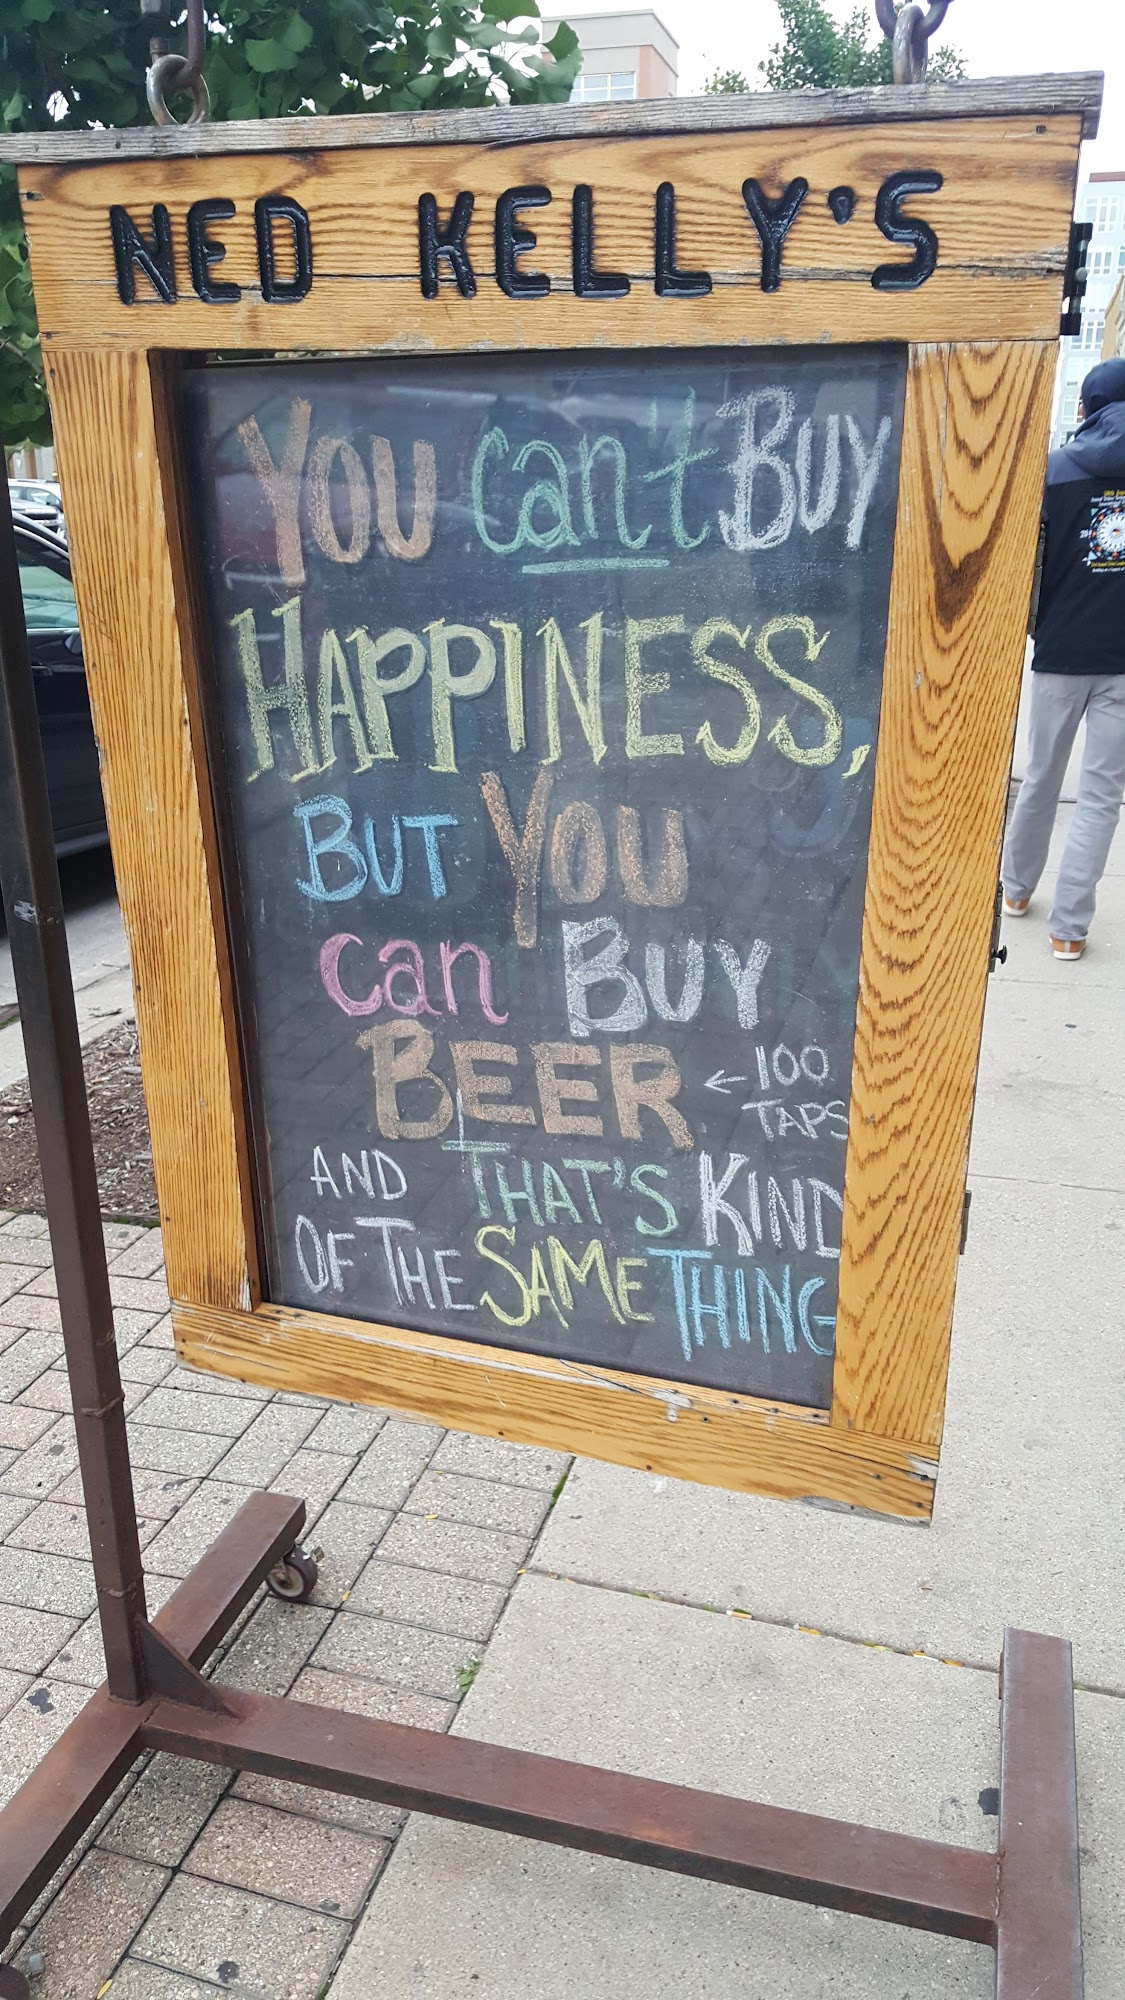 NED KELLY'S
You can't Buy
HAPPINESS,
BUT You
can Buy
BEER ← 100
TAPS
AND THAT'S KIND
OF THE SAME THING